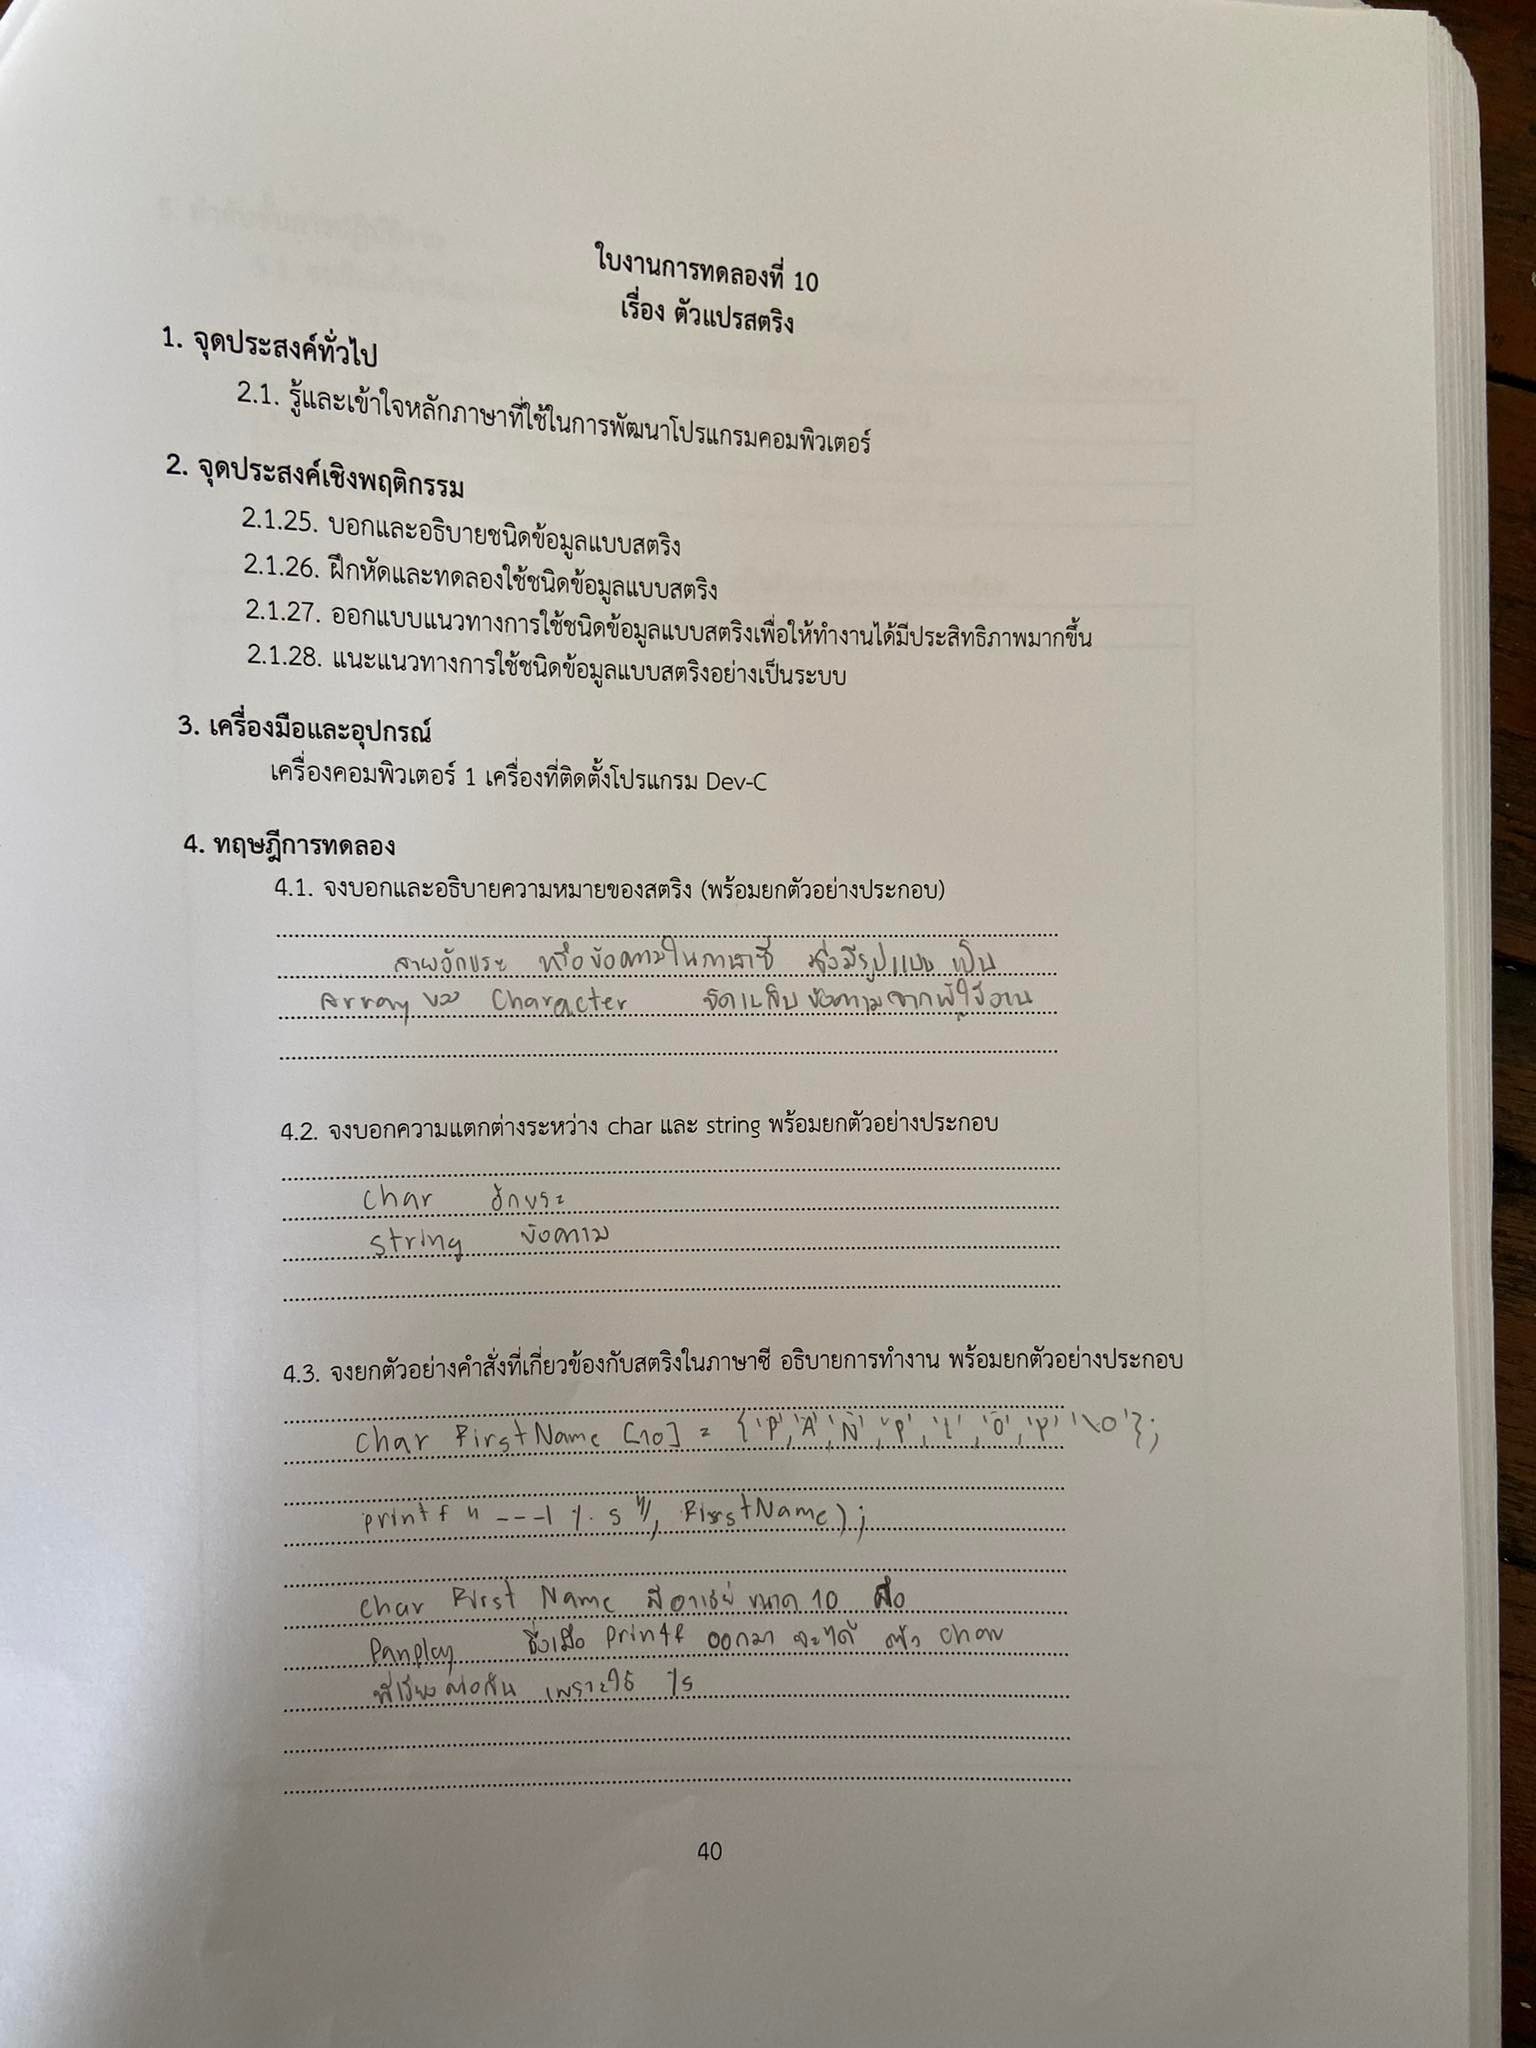 ใบงานการทดลองที่ 10
เรื่อง ตัวแปรสตริง
1. จุดประสงค์ทั่วไป
2.1. รู้และเข้าใจหลักภาษาที่ใช้ในการพัฒนาโปรแกรมคอมพิวเตอร์
2. จุดประสงค์เชิงพฤติกรรม
2.1.25. บอกและอธิบายชนิดข้อมูลแบบสตริง
2.1.26. ฝึกหัดและทดลองใช้ชนิดข้อมูลแบบสตริง
2.1.27. ออกแบบแนวทางการใช้ชนิดข้อมูลแบบสตริงเพื่อให้ทำงานได้มีประสิทธิภาพมากขึ้น
2.1.28. แนะแนวทางการใช้ชนิดข้อมูลแบบสตริงอย่างเป็นระบบ
3. เครื่องมือและอุปกรณ์
เครื่องคอมพิวเตอร์ 1 เครื่องที่ติดตั้งโปรแกรม Dev-C
4. ทฤษฎีการทดลอง
4.1. จงบอกและอธิบายความหมายของสตริง (พร้อมยกตัวอย่างประกอบ)
สายอักขระ หรือข้อความในภาษาซี ซึ่งมีรูปแบบ เป็น
array ของ Character จัดเก็บข้อความจากผู้ใช้งาน
4.2. จงบอกความแตกต่างระหว่าง char และ string พร้อมยกตัวอย่างประกอบ
char อักขระ
string ข้อความ
4.3. จงยกตัวอย่างคำสั่งที่เกี่ยวข้องกับสตริงในภาษาซี อธิบายการทำงาน พร้อมยกตัวอย่างประกอบ
char FirstName [10] = {'P','A','N','P','L','O','Y' '\0'};
printf " ---| %.s", FirstName);
char First Name มีอาเรย์ ขนาด 10 คือ
Panploy ซึ่งเมื่อ printf ออกมา จะได้ ตัว char
ที่เรียงต่อกัน เพราะใช้ %s
40